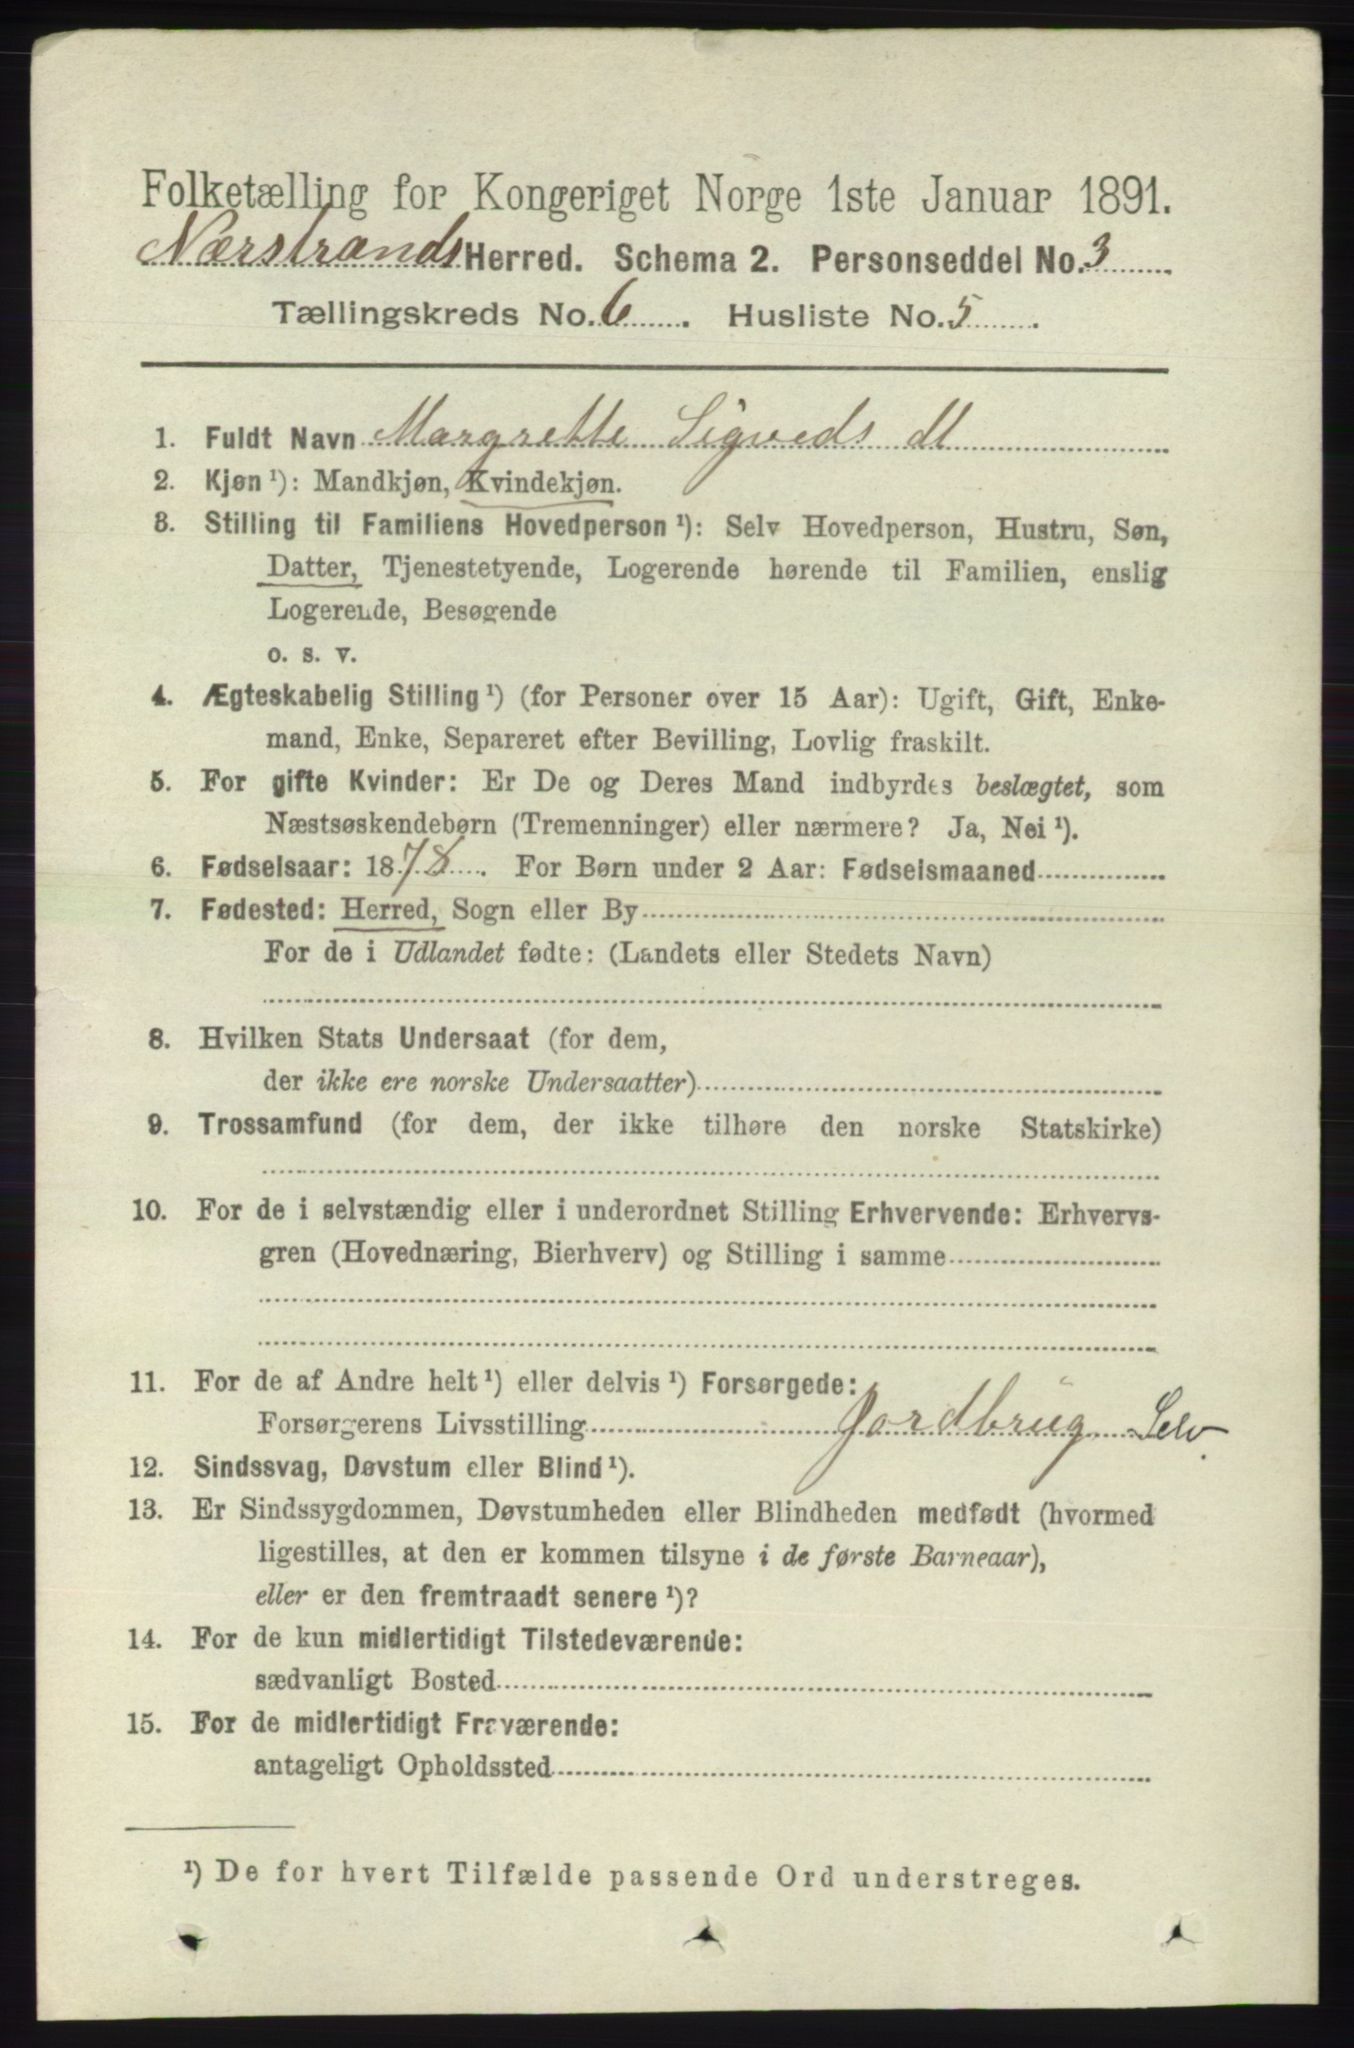 Folketælling for Kongeriget Norge 1ste Januar 1891.
Nærstrands Herred. Schema 2. Personseddel No. 3
Tællingskreds No. 6. Husliste No. 5.
1. Fuldt Navn Margrette Sigveds dt
2. Kjøn ¹): Mandkjøn, Kvindekjøn.
3. Stilling til Familiens Hovedperson ¹): Selv Hovedperson, Hustru, Søn,
Datter, Tjenestetyende, Logerende hørende til Familien, enslig
Logerende, Besøgende
o. s. v.
4. Ægteskabelig Stilling ¹) (for Personer over 15 Aar): Ugift, Gift, Enke-
mand, Enke, Separeret efter Bevilling, Lovlig fraskilt.
5. For gifte Kvinder: Er De og Deres Mand indbyrdes beslægtet, som
Næstsøskendebørn (Tremenninger) eller nærmere? Ja, Nei ¹).
6. Fødselsaar: 1878. For Børn under 2 Aar: Fødselsmaaned
7. Fødested: Herred, Sogn eller By
For de i Udlandet fødte: (Landets eller Stedets Navn)
8. Hvilken Stats Undersaat (for dem,
der ikke ere norske Undersaatter)
9. Trossamfund (for dem, der ikke tilhøre den norske Statskirke)
10. For de i selvstændig eller i underordnet Stilling Erhvervende: Erhvervs-
gren (Hovednæring, Bierhverv) og Stilling i samme
11. For de af Andre helt ¹) eller delvis ¹) Forsørgede:
Forsørgerens Livsstilling Jordbrug Selv.
12. Sindssvag, Døvstum eller Blind ¹).
13. Er Sindssygdommen, Døvstumheden eller Blindheden medfødt (hvormed
ligestilles, at den er kommen tilsyne i de første Barneaar),
eller er den fremtraadt senere ¹)?
14. For de kun midlertidigt Tilstedeværende:
sædvanligt Bosted
15. For de midlertidigt Fraværende:
antageligt Opholdssted
¹) De for hvert Tilfælde passende Ord understreges.